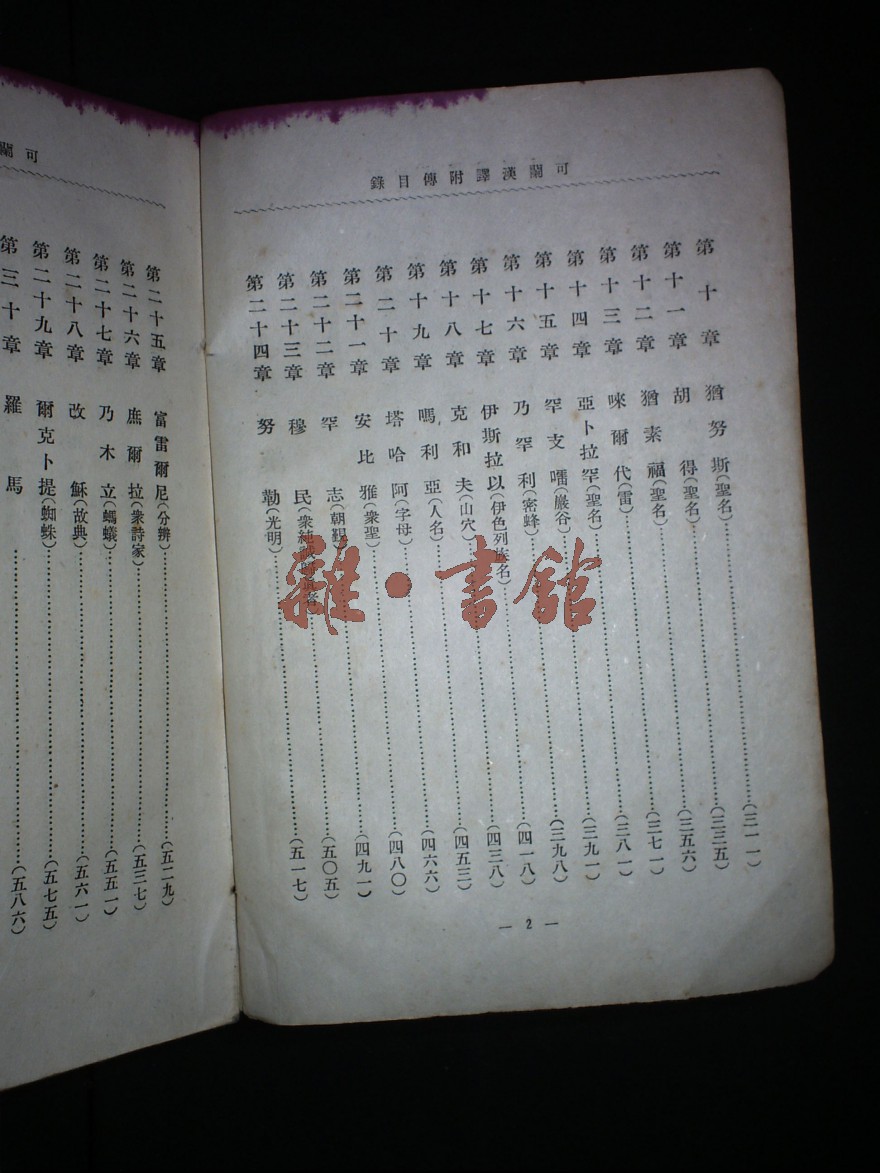 可蘭漢譯附傳目錄
第十章 猶努斯(聖名)……(三一一)
第十一章 胡得(聖名)……(三三五)
第十二章 猶素福(聖名)……(三五六)
第十三章 唻爾代(雷)……(三七一)
第十四章 亞卜拉罕(聖名)……(三八一)
第十五章 罕支嚕(巖谷)……(三九一)
第十六章 乃罕利(密蜂)……(三九八)
第十七章 伊斯拉以(伊色列族名)……(四一八)
第十八章 克和夫(山穴)……(四三八)
第十九章 嗎利亞(人名)……(四五三)
第二十章 塔哈阿(字母)……(四六六)
第二十一章 安比雅(衆聖)……(四八〇)
第二十二章 罕志(朝覲)……(四九一)
第二十三章 穆民(衆純誠者)……(五〇五)
第二十四章 努勒(光明)……(五一七)
— 2 —
可蘭
第二十五章 富雷爾尼(分辨)……(五二九)
第二十六章 庶爾拉(衆詩家)……(五三七)
第二十七章 乃木立(螞蟻)……(五五一)
第二十八章 改穌(故典)……(五六一)
第二十九章 爾克卜提(蜘蛛)……(五七五)
第三十章 羅馬……(五八六)
雜·書館